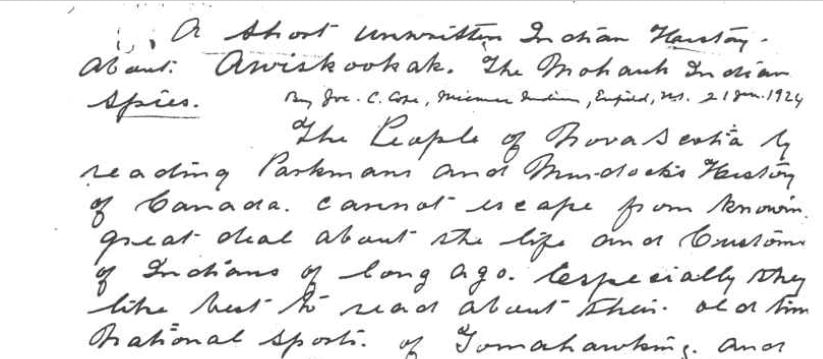 A short unwritten Indian History.
About. Awiskookak. The Mohawk Indian
Spies. By Joe. C. Cope, Micmac Indian, Enfield, N.S. 21 Jan. 1924
The People of Nova Scotia by
reading Parkmans and Murdock's History
of Canada. cannot escape from knowin
great deal about the life and Custom
of Indians of long ago. Especially they
like best to read about their. old tim
National Sports. of Tomahawking. and